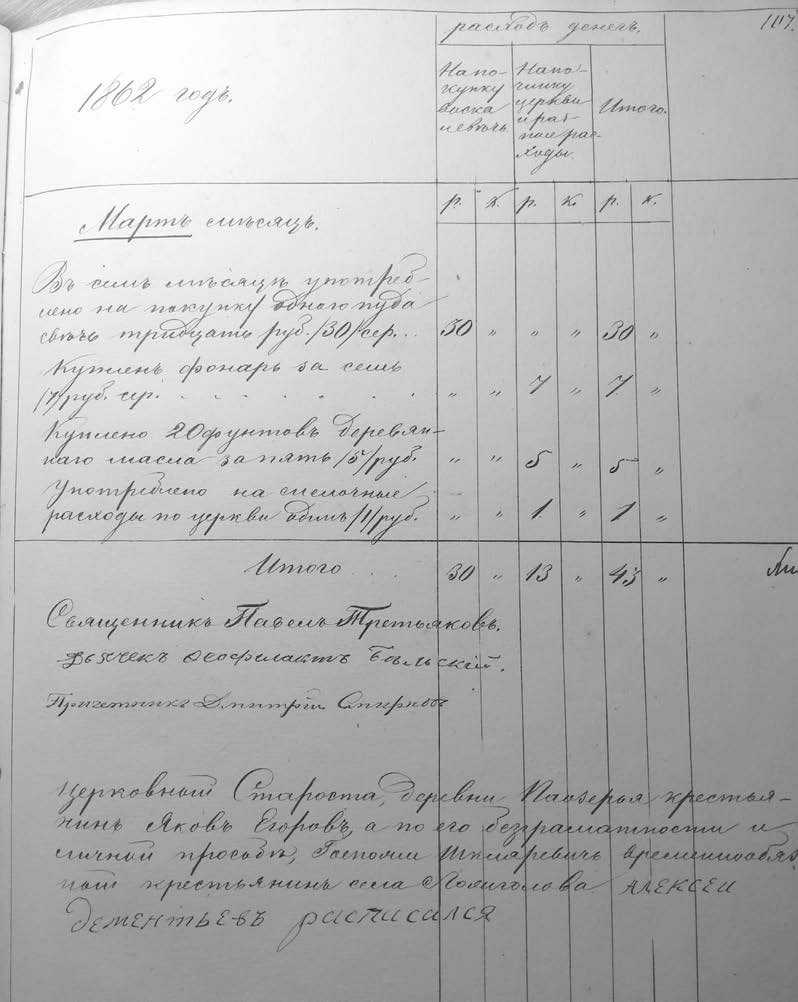 расходъ денегъ.
107.
1862 годъ.
На по-
купку
воска
и свѣчъ
На по-
чинку
церкви
и раз-
ные рас-
ходы.
Итого.
р. к. р. к. р. к.
Мартъ мѣсяцъ.
Въ семъ мѣсяцѣ употреб-
лено на покупку одного пуда
свѣчъ тридцать руб. /30/ сер. .. 30 „ „ „ 30 „
Купленъ фонарь за семь
/7/ руб. сер. . . . . . . „ „ 7 „ 7 „
Куплено 20 фунтовъ деревян-
наго масла за пять /5/ руб. „ „ 5 „ 5 „
Употреблено на мелочные
расходы по церкви одинъ /1/ руб. „ „ 1 „ 1 „
Итого . . 30 „ 13 „ 43 „
Священникъ Павелъ Третьяковъ.
Дьячекъ Ѳеофилактъ Бѣльскій.
Причетникъ Дмитрій Смирновъ
Церковной Староста, деревни Паозерья крестья-
нинъ Яковъ Егоровъ, а по его безграматности и
личной прозбѣ, Госпожи Шкларевичъ временнообяз
ной крестьянинъ села АЛЕКСЕИ
ДЕМЕНТЬЕВЪ расписался